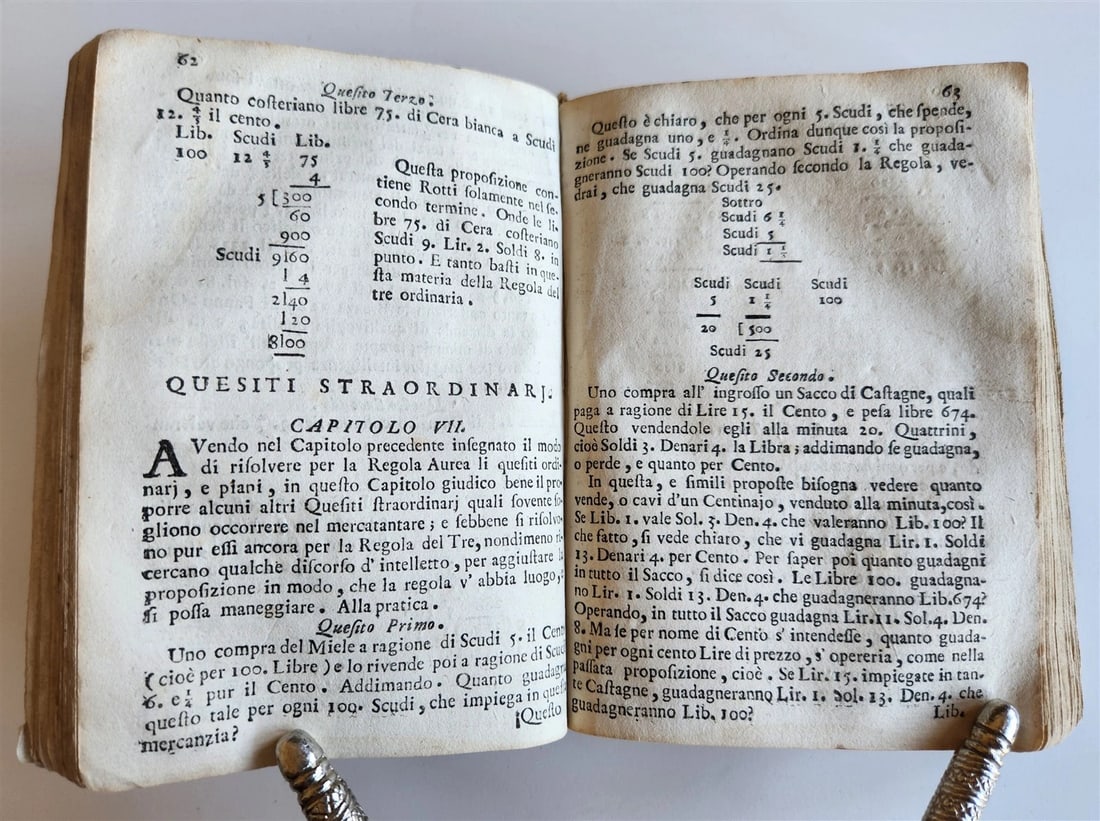 62
Queſito Terzo.
Quanto coſteriano libre 75. di Cera bianca a Scudi
12. 4/5 il cento.
Lib. Scudi Lib.
100 12 4/5 75
4
5 [300
60
900
Scudi 9|60
| 4
2|40
|20
8|00
Queſta propoſizione con-
tiene Rotti ſolamente nel ſe-
condo termine. Onde le li-
bre 75. di Cera coſteriano
Scudi 9. Lir. 2. Soldi 8. in
punto. E tanto baſti in que-
ſta materia della Regola del
tre ordinaria.
QUESITI STRAORDINARJ.
CAPITOLO VII.
AVendo nel Capitolo precedente inſegnato il modo
di riſolvere per la Regola Aurea li queſiti ordi-
narj, e piani, in queſto Capitolo giudico bene il pro-
porre alcuni altri Queſiti ſtraordinarj quali ſovente ſo-
gliono occorrere nel mercatantare; e ſebbene ſi riſolvo-
no pur eſſi ancora per la Regola del Tre, nondimeno ri-
cercano qualche diſcorſo d' intelletto, per aggiuſtare la
propoſizione in modo, che la regola v' abbia luogo, e
ſi poſſa maneggiare. Alla pratica.
Queſito Primo.
Uno compra del Miele a ragione di Scudi 5. il Cento
(cioè per 100. Libre) e lo rivende poi a ragione di Scudi
6. e 1/4 pur il Cento. Addimando. Quanto guadagna
queſto tale per ogni 100. Scudi, che impiega in queſta
mercanzia?
Queſto
63
Queſto è chiaro, che per ogni 5. Scudi, che ſpende,
ne guadagna uno, e 1/4. Ordina dunque così la propoſi-
zione. Se Scudi 5. guadagnano Scudi 1. 1/4 che guada-
gneranno Scudi 100? Operando ſecondo la Regola, ve-
drai, che guadagna Scudi 25.
Sottro
Scudi 6 1/4
Scudi 5
Scudi 1 1/4
Scudi Scudi Scudi
5 1 1/4 100
20 [500
Scudi 25
Queſito Secondo.
Uno compra all' ingroſſo un Sacco di Caſtagne, quali
paga a ragione di Lire 15. il Cento, e peſa libre 674.
Queſto vendendole egli alla minuta 20. Quattrini,
cioè Soldi 3. Denari 4. la Libra; addimando ſe guadagna,
o perde, e quanto per Cento.
In queſta, e ſimili propoſte biſogna vedere quanto
vende, o cavi d'un Centinajo, venduto alla minuta,così.
Se Lib. 1. vale Sol. 3. Den. 4. che valeranno Lib. 100? Il
che fatto, ſi vede chiaro, che vi guadagna Lir. 1. Soldi
13. Denari 4. per Cento. Per ſaper poi quanto guadagni
in tutto il Sacco, ſi dice così. Le Libre 100. guadagna-
no Lir. 1. Soldi 13. Den. 4. che guadagneranno Lib.674?
Operando, in tutto il Sacco guadagna Lir.11. Sol.4. Den.
8. Ma ſe per nome di Cento s' intendeſſe, quanto guada-
gni per ogni cento Lire di prezzo, s' opereria, come nella
paſſata propoſizione, cioè. Se Lir. 15. impiegate in tan-
te Caſtagne, guadagneranno Lir. 1. Sol. 13. Den. 4. che
guadagneranno Lib. 100?
Lib.